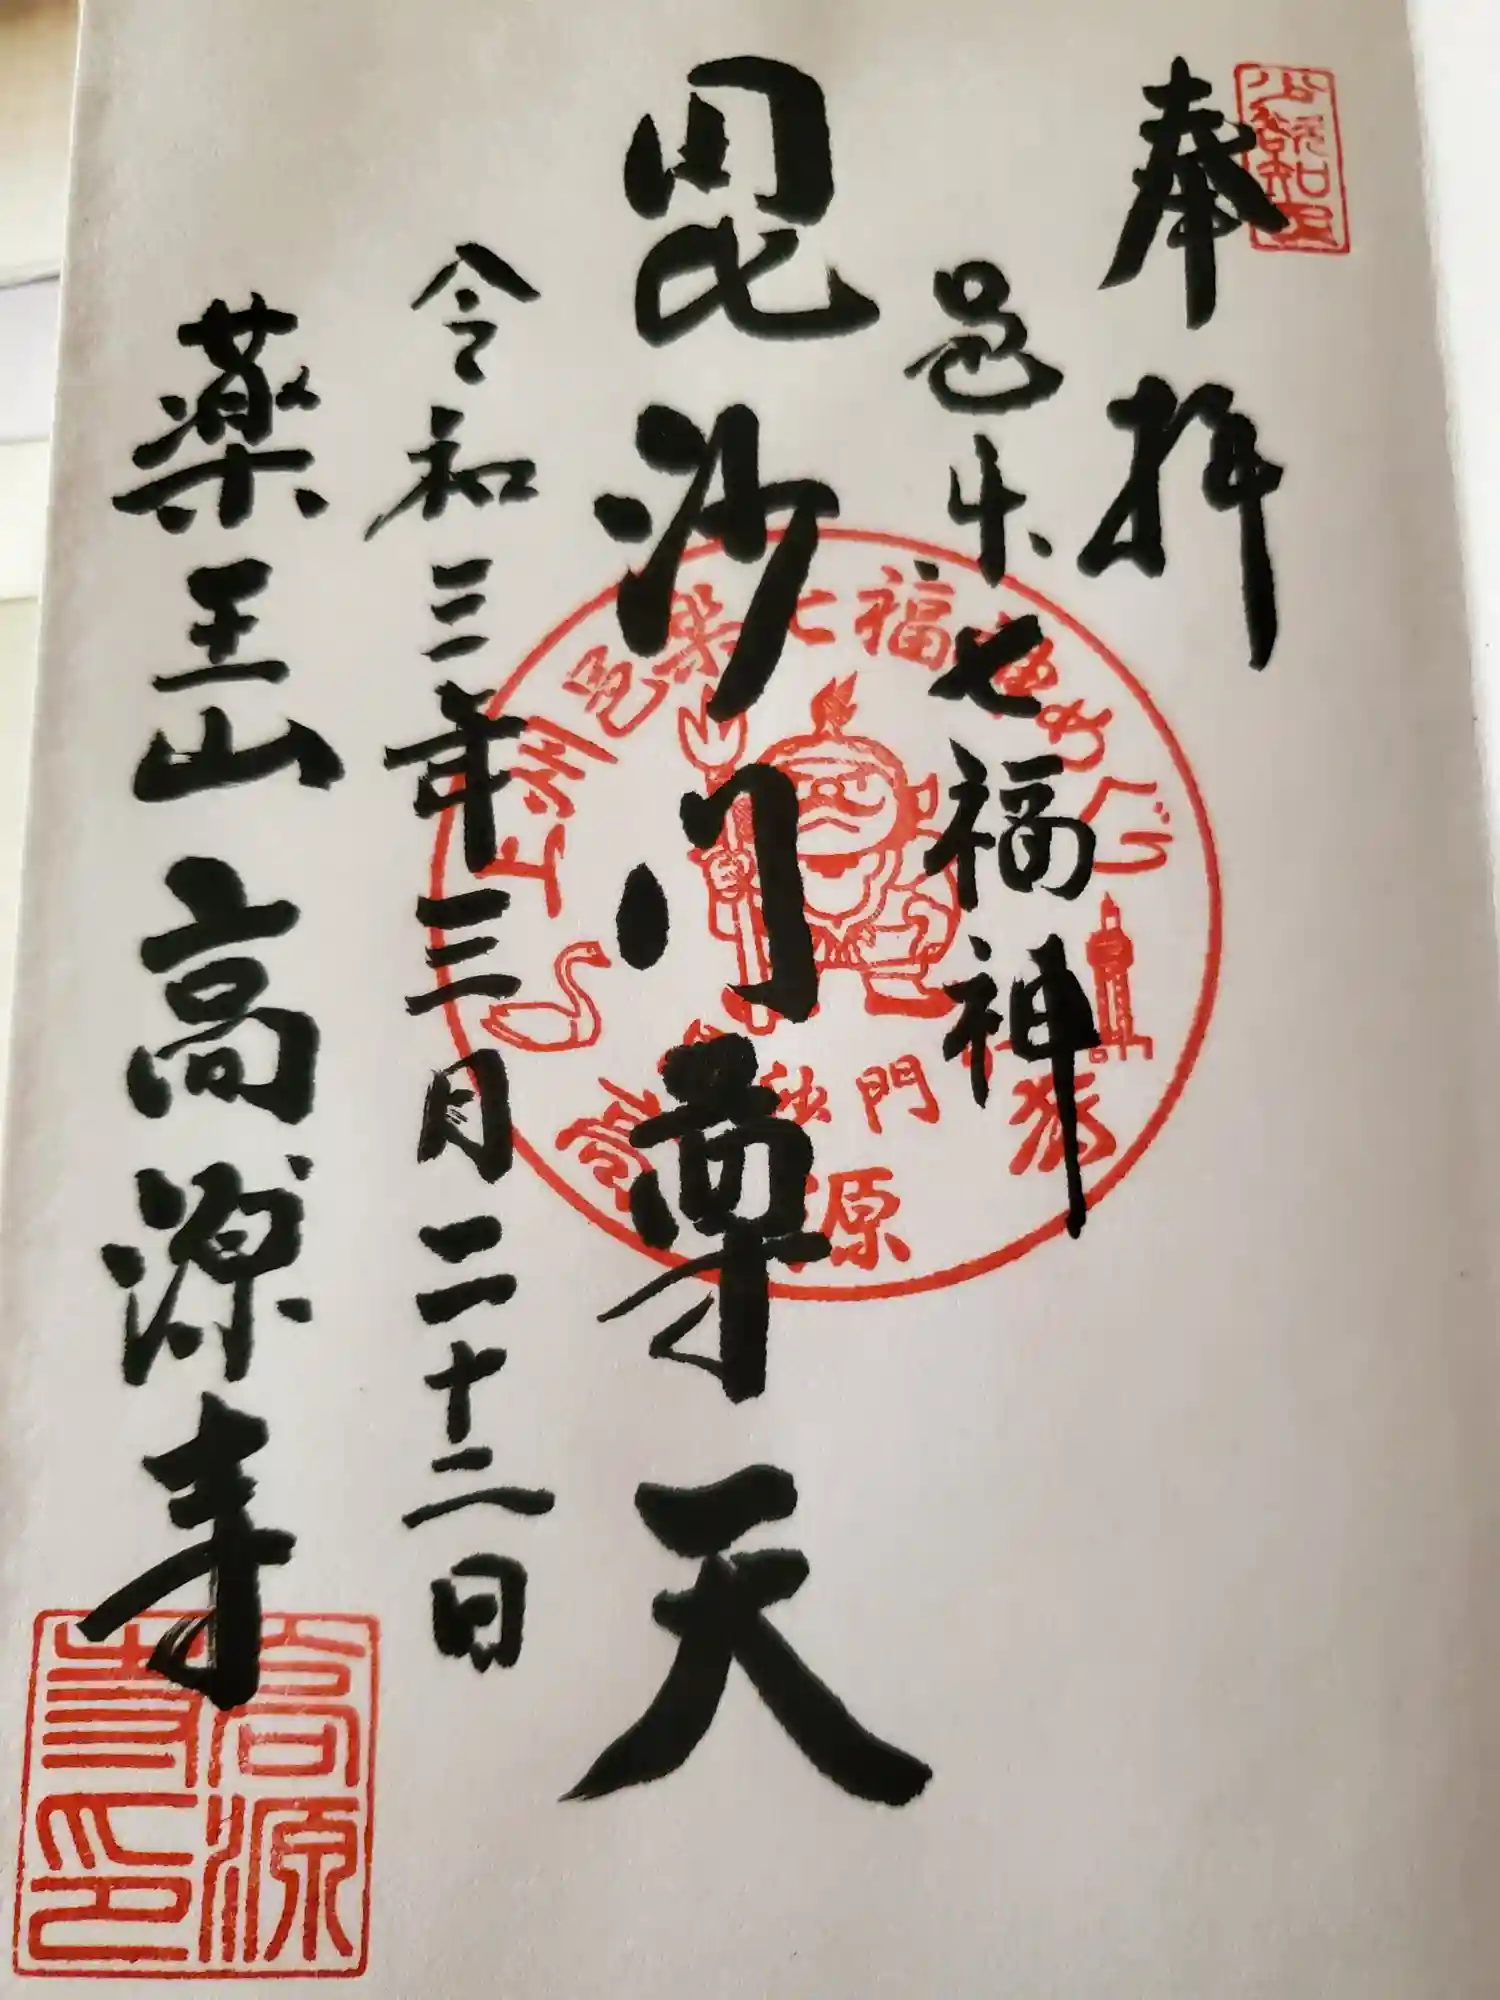 奉拝
邑楽七福神
毘沙門尊天
令和三年三月二十二日
薬王山高源寺
上州邑楽七福神めぐり
沙門
源
高源
寺印